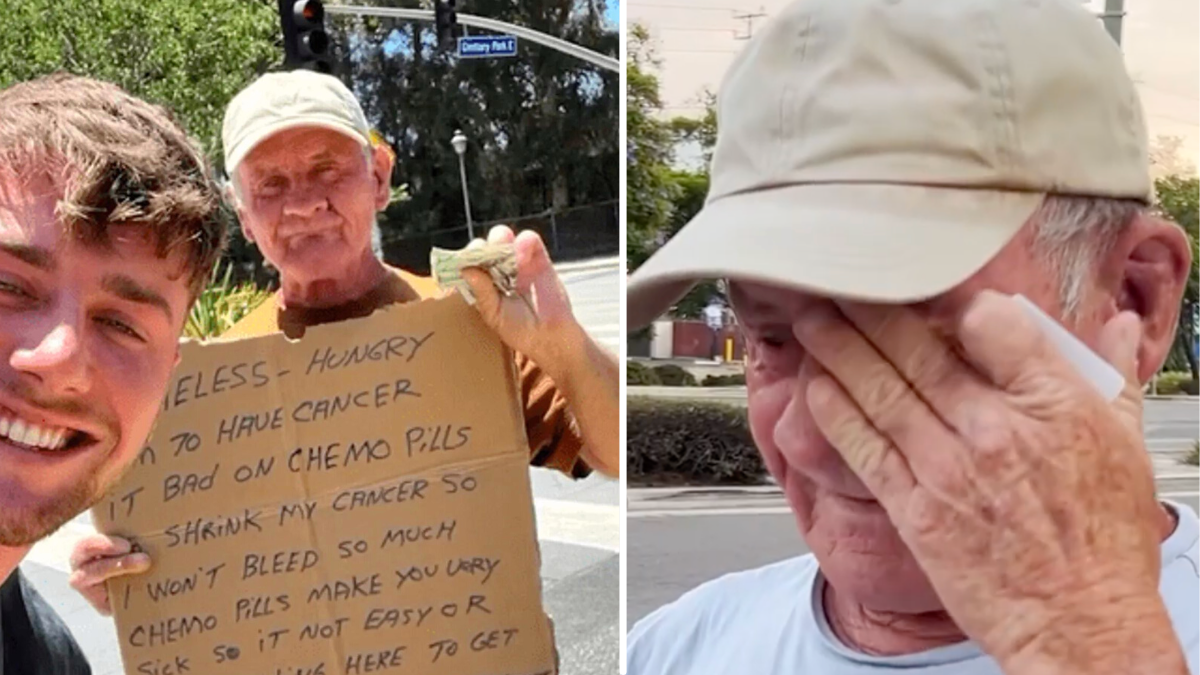 Century Park E
ELESS - HUNGRY
70 HAVE CANCER
IT BAD ON CHEMO PILLS
SHRINK MY CANCER SO
I WON'T BLEED SO MUCH
CHEMO PILLS MAKE YOU VERY
SICK SO IT NOT EASY OR
HERE TO GET